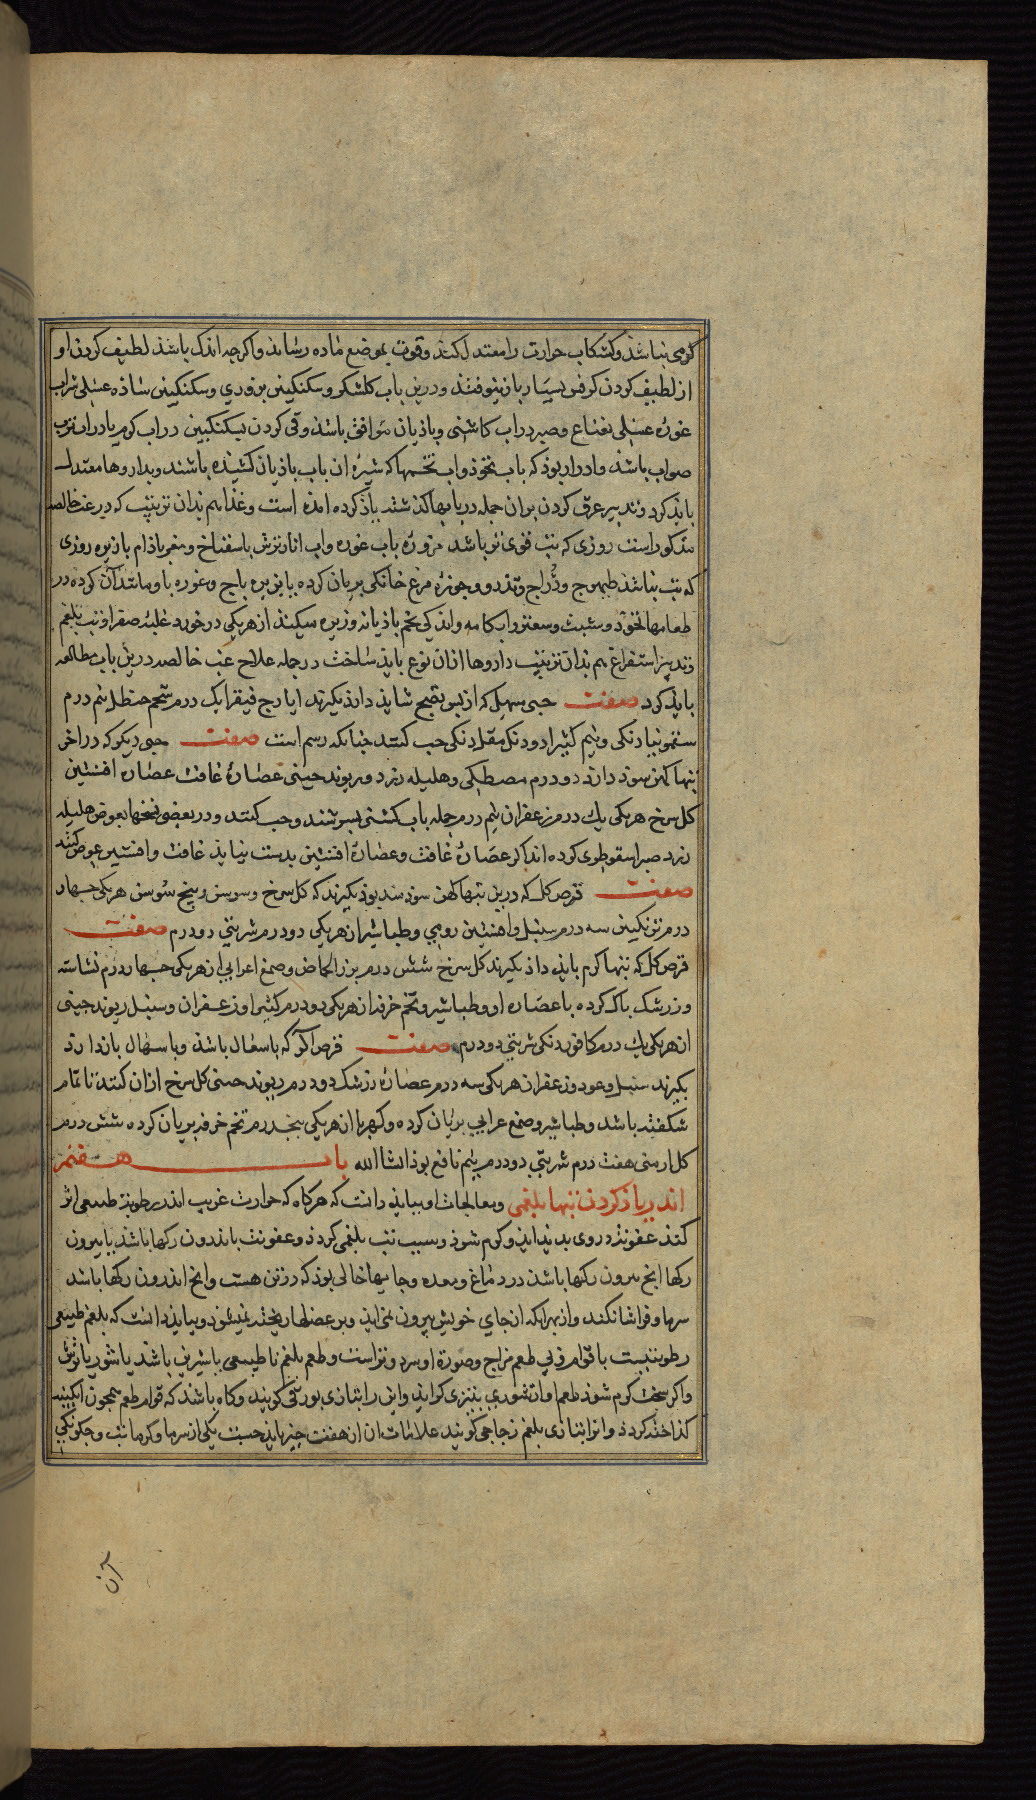 گرمی نباشد وکشکاب حرارت را معتدل کند وقوت بموضع ماده رساند واکرچه اندک باشد لطیف کردن او
از لطیف کردن کرفس بسیار باز نیوفتد ودرین باب کلشکر وسکنکبین بزوری وسکنکبین ساده عسلی شراب
غوره عسلی نعناع وصبر دراب کاسنی وباذیان موافق باشد وقی کردن بسکنکبین دراب کرم یا دراب ترب
صواب باشد وادرار بوذ که باب نخوذ واب تخمها که شیره ان باب باذیان کشیده باشند وبداروها معتدل
باید کرد وتدبیر عرق کردن بران جمله در بابها کذشته یاذ کرده امده است وغذا هم بدان ترتیب که در غب خالصه
مذکور است روزی که تب قوی تر باشد مزوره باب غوره واب انار ترش باسفناخ ومغز باذام بازیره روزی
که تب نباشذ طیهوج ودراج وتذرو وجوزه مرغ خانکی بریان کرده یا زیره باج وغوره با ومانند آن کرده در
طعامها نخوذ وشبث وسعتر وابکامه واندکی تخم باذیانه وزیره میکند از هریکی درخورد غلبه صفرا وتب بلغم
وتدبیر استفراغ هم بدان ترتیب داروها ازان نوع باید ساخت درجمله علاج غب خالصه درین باب مطالعه
باید کرد صفت حبی مسهل که از پس نضج شاید داذ بکیرند ایارج فیقرا یک درم شحم حنظل نیم درم
سقمونیا دنکی ونیم کثیرا دودنک مقل دنکی حب کنند چنانکه رسم است صفت حبی دیکر که در اخر
تبها کهن سوذ دارد دودرم مصطکی وهلیله زرد وریوند چینی عصارهٔ غافت عصاره افسنتین
کل سرخ هریکی یک درم زعفران نیم درم جمله باب کشنی بسرشند وحب کنند ودر بعضی نسخها بعوض هلیله
زرد صبر اسقوطری کرده اند اکر عصارهٔ غافت وعصارهٔ افسنتین بدست نیاید غافت وافسنتین عوض کنند
صفت قرص کل که درین تبها کهن سوذمند بوذ بکیرند که کل سرخ وسوسن وبیخ سوسن هریکی چهار
درم ترنکبین سه درم سنبل وافسنتین رومی وطباشیر از هریکی دودرم شربتی دودرم صفت
قرص کل که تبها کرم باید داذ بکیرند کل سرخ شش درم بزر الحماض وصمغ اعرابی از هریکی چهار درم نشاسته
وزرشک باک کرده یا عصاره او وطباشیر وتخم خرفه از هریکی دودرم کثیرا وزعفران وسنبل ریوند چینی
از هریکی یک درم کافور دنکی شربتی دودرم صفت قرص اکر که باسعال باشد وباسهال بازدارد
بکیرند سنبل وعود وزعفران هریکی سه درم عصارهٔ زرشک دودرم ریوند چینی کل سرخ ازان کنند ناتمام
شکفته باشد وطباشیر وصمغ عرابی بریان کرده وکهربا از هریکی پنجدرم تخم خرفه بریان کرده شش درم
کل ارمنی هفت درم شربتی دودرم نیم نافع بوذ انشا الله باب هفتم
اندر یاذ کردن تبها بلغمی ومعالجات او بباید دانست که هرکاه که حرارت غریب اندر رطوبت طبیعی اثر
کند عفونت دروی بدید اید وکرم شوذ وسبب تب بلغمی کردذ وعفونت یا اندرون رکها باشد یا بیرون
رکها انچ بیرون رکها باشد در دماغ ومعده وجایها خالی بوذ که درتن هست وانچ اندرون رکها باشد
سرها وفراشا نکند وازبهر انکه از جای خویش بیرون نمی اید وبر عضلها ریخته نمیشود وبباید دانست که بلغم طبیعی
رطوبتیست باقوام وبی طعم مزاج وصورة او سرد وتر است وطعم بلغم ناطبیعی یا شیرین باشد یا شور یا ترش
واکر سخت کرم شوذ طعم او از شوری بتیزی کراید واین را بتازی بورقی کویند وکاه باشد که قوام طعم همچون ابکینه
کداخته کردذ وانرا بتازی بلغم زجاجی کویند علامات ان از هفت چیز باید جست یکی از سرما وکرما تب وچکونکی
آن